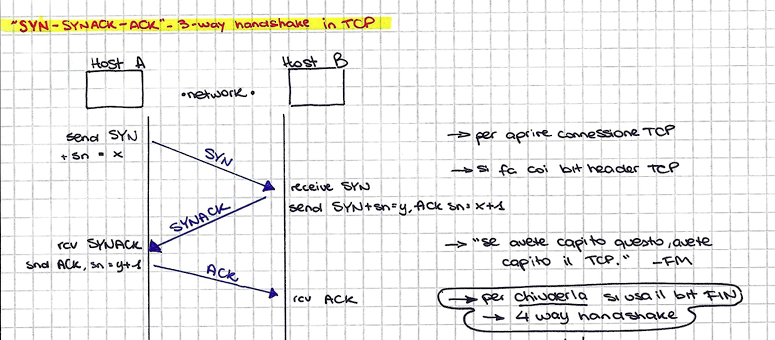 "SYN-SYNACK-ACK" - 3-way handshake in TCP
Host A
Host B
•network•
send SYN
+ sn = x
SYN
receive SYN
send SYN+sn=y, ACK sn=x+1
SYNACK
rcv SYNACK
snd ACK, sn=y+1
ACK
rcv ACK
→ per aprire connessione TCP
→ si fa coi bit header TCP
→ "se avete capito questo, avete
capito il TCP." -FM
→ per chiuderla si usa il bit FIN
→ 4 way handshake